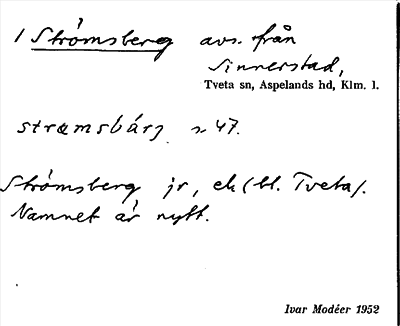 1 Strömsberg avs. från
Sinnerstad,
Tveta sn, Aspelands hd, Klm. l.
strœmsbárj s. 47.
Strömsberg jr, ek (bl. Tveta).
Namnet är nytt.
Ivar Modéer 1952